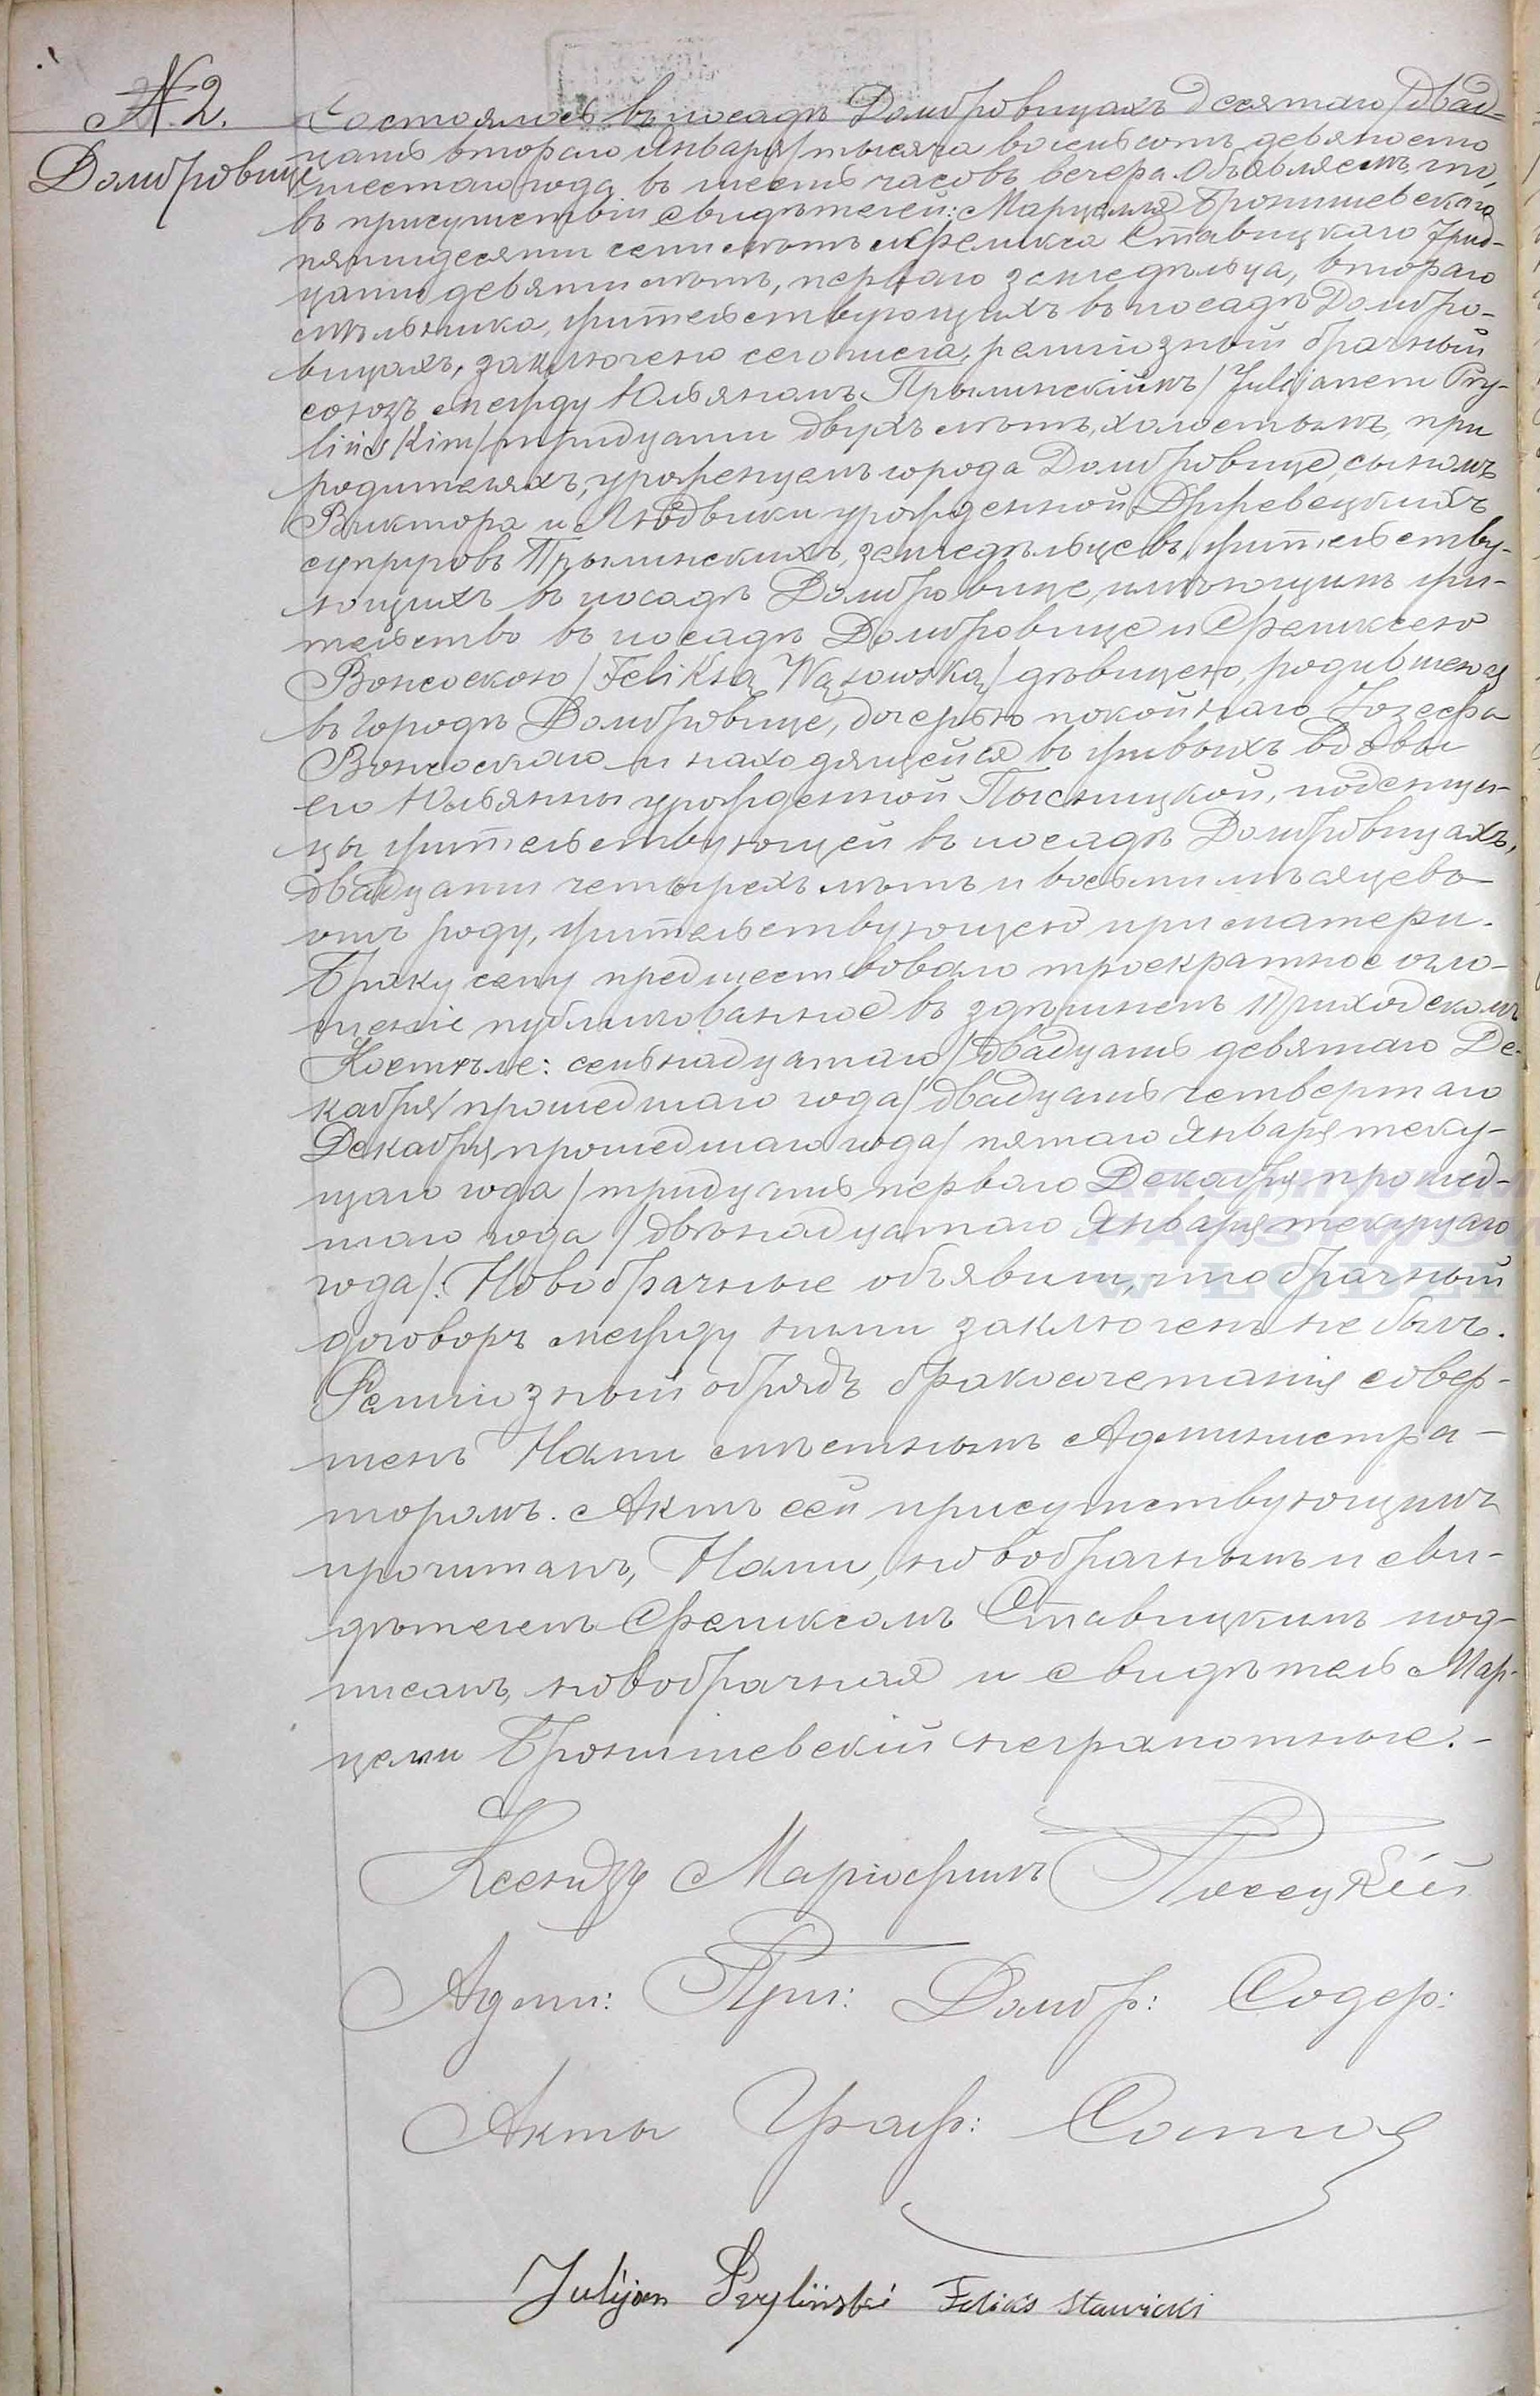 № 2.
Домбровице
Состоялось въ посадѣ Домбровицахъ десятаго /двад-
цать втораго Января/ тысяча восемьсотъ девяносто
шестаго года въ шесть часовъ вечера. Объявляемъ, что,
въ присутствіи свидѣтелей: Марцелля Бронишевскаго
пятидесяти семи лѣтъ и Феликса Ставицкаго трид-
цати девяти лѣтъ, перваго земледѣльца, втораго
мѣльника, жительствующихъ въ посадѣ Домбро-
вицахъ, заключено сего числа, религіозный брачный
союзъ между Юльяномъ Прылинскимъ /Julijanem Pry-
lińskim/ тридцати двухъ лѣтъ, холостымъ, при
родителяхъ, уроженцемъ города Домбровице, сыномъ
Виктора и Людвики урожденной
супруговъ Прылинскихъ, земледѣльцевъ, жительству-
ющихъ въ посадѣ Домбровице, имѣющимъ жи-
тельство въ посадѣ Домбровице и Феликсою
/Feliksą Wąsowską/ дѣвицею, родившеюся
въ городѣ Домбровице, дочерью покойнаго Іозефа
и находящейся въ живыхъ вдовы
его Юльянны урожденной поденщи-
цы жительствующей въ посадѣ Домбровицахъ,
двадцати четырехъ лѣтъ и восьми мѣсяцевъ
отъ роду, жительствующею при матери.
Браку сему предшествовало троекратное огло-
шеніе публикованное въ здѣшнемъ Приходскомъ
Костеле: семьнадцатаго /двадцать девятаго Де-
кабря/ прошедшаго года/ двадцать четвертаго
Декабря прошедшаго года/ пятаго Января теку-
щаго года/ тридцать перваго Декабря прошед-
шаго года /двѣнадцатаго Января текущаго
года/: Новобрачные объявили, что брачный
договоръ между ними заключенъ не былъ.
Религіозный обрядъ бракосочетанія совер-
шенъ Нами мѣстнымъ Администра-
торомъ. Актъ сей присутствующимъ
прочитанъ, Нами, новобрачнымъ и сви-
дѣтелемъ Феликсомъ Ставицкимъ под-
писанъ, новобрачная и свидѣтель Мар-
целли Бронишевскій неграмотные.-
Ксендзъ
Адми: При: Домбр: Содер:
Акты Граж: Состо
Julijan Pryliński Feliks Stawicki